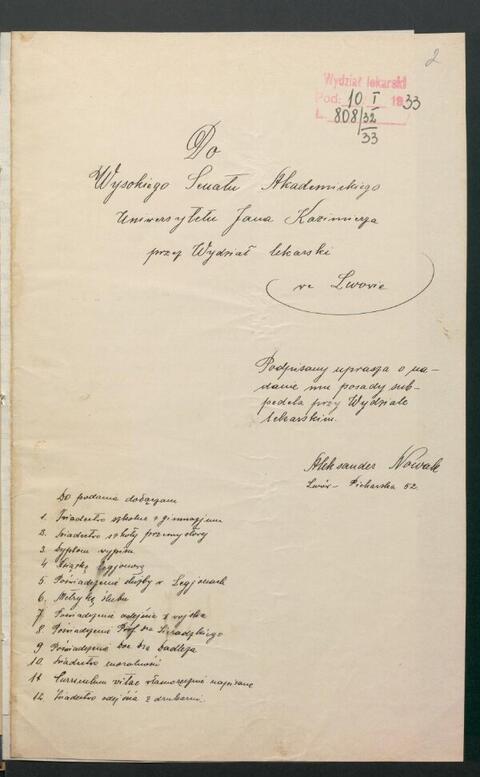 2
Wydział lekarski
Pod. 10 I 1933
L. 808/32
33
Do
Wysokiego Senatu Akademickiego
Uniwersytetu Jana Kazimierza
przez Wydział lekarski
we Lwowie
Podpisany uprasza o na-
danie mu posady sub-
pedela przy Wydziale
lekarskim.
Aleksander Nowak
Lwów - Piekarska 52.
Do podania dołączam
1. Świadectwo szkolne z gimnazjum
2. Świadectwo szkoły przemysłowej
3. Dyplom wypisu
4 Książkę Legjonową
5. Poświadczenie służby w Legjonach
6. Metrykę ślubu
7 Poświadczenie odejścia z wojska
8 Poświadczenie Prof. dra Sieradzkiego
9 Poświadczenie dra
10. Świadectwo moralności
11 Curriculum vitae własnoręcznie napisane
12. Świadectwo odejścia z drukarni.